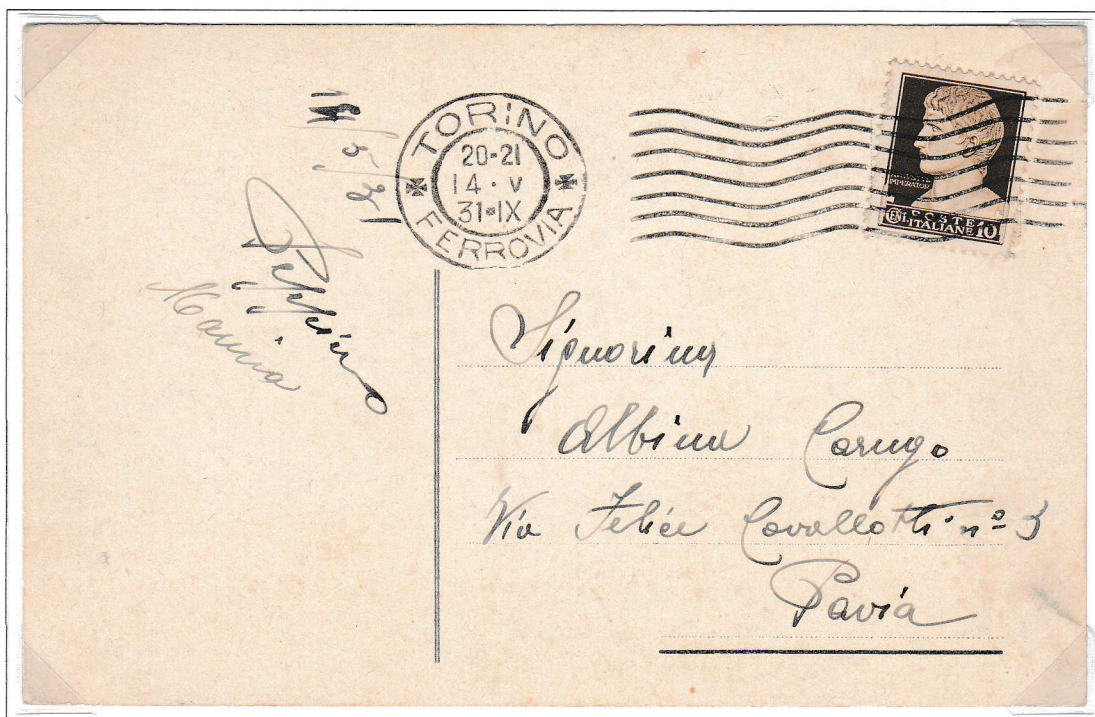 14/5/31
Peppino
Marina
TORINO
20-21
14·V
31-IX
FERROVIA
IMPERATOR
POSTE
CENT. ITALIANE 10
Signorina
Albina Carugo
Via Felice Cavallotti nº 3
Pavia